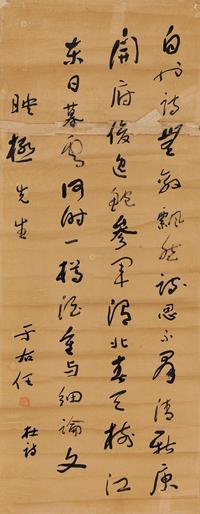 白也詩無敵飄然詩思不群清新庾
開府俊逸鮑參軍渭北春天樹江
東日暮雲何時一樽酒重與細論文
映極先生
于右任
杜詩